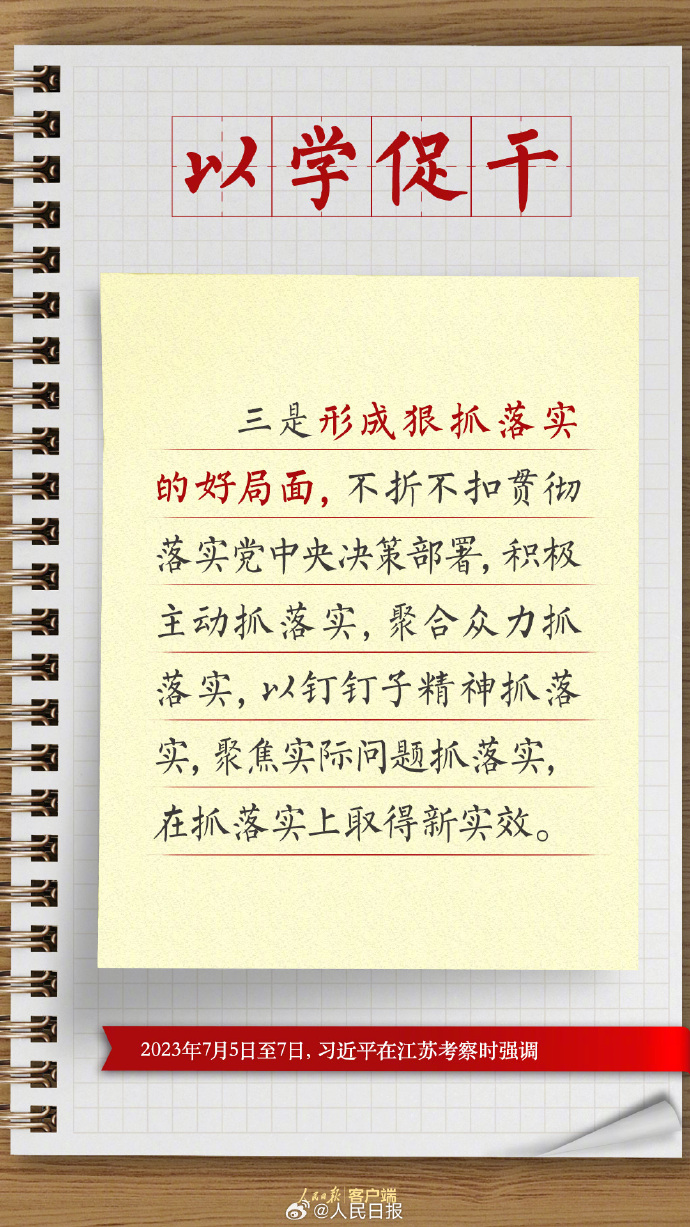 以学促干
三是形成狠抓落实
的好局面，不折不扣贯彻
落实党中央决策部署，积极
主动抓落实，聚合众力抓
落实，以钉钉子精神抓落
实，聚焦实际问题抓落实，
在抓落实上取得新实效。
2023年7月5日至7日，习近平在江苏考察时强调
人民日报 客户端
@人民日报